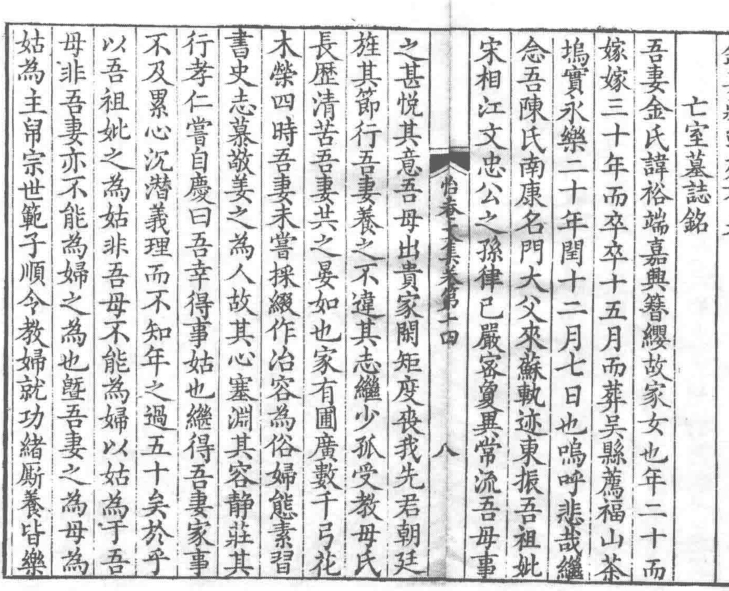 亡室墓誌銘
吾妻金氏諱裕端嘉興簪纓故家女也年二十而
嫁嫁三十年而卒卒十五月而葬吴縣薦福山茶
塢實永樂二十年閏十二月七日也嗚呼悲哉繼
念吾陳氏南康名門大父來蘇軌迹東振吾祖妣
宋相江文忠公之孫律已嚴宻敻異常流吾母事
怡菴文集卷第十四
八
之甚悦其意吾母出貴家閑矩度喪我先君朝廷
旌其節行吾妻養之不違其志繼少孤受教母氏
長歷清苦吾妻共之晏如也家有圃廣數千弓花
木榮四時吾妻未嘗採綴作冶容為俗婦態素習
書史志慕敬姜之為人故其心塞淵其容静莊其
行孝仁嘗自慶曰吾幸得事姑也繼得吾妻家事
不及累心沉潜義理而不知年之過五十矣於乎
以吾祖妣之為姑非吾母不能為婦以姑為于吾
母非吾妻亦不能為婦之為也曁吾妻之為母為
姑為主帠宗世範子順令教婦就功緒厮養皆樂